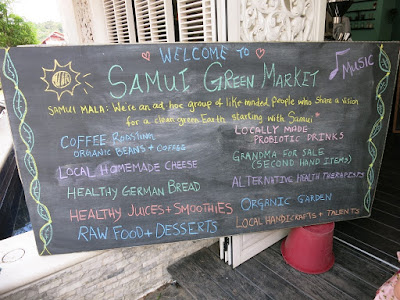 WELCOME TO
SAMUI GREEN MARKET
MUSIC
SAMUI MALA: We're an ad hoc group of like minded people who share a vision
for a clean green Earth, starting with Samui
COFFEE ROASTING
ORGANIC BEANS + COFFEE
LOCAL HOMEMADE CHEESE
HEALTHY GERMAN BREAD
HEALTHY JUICES + SMOOTHIES
RAW FOOD + DESSERTS
LOCALLY MADE
PROBIOTIC DRINKS
GRANDMA FOR SALE
(SECOND HAND ITEMS)
ALTERNATIVE HEALTH THERAPISTS
ORGANIC GARDEN
LOCAL HANDICRAFTS + TALENTS